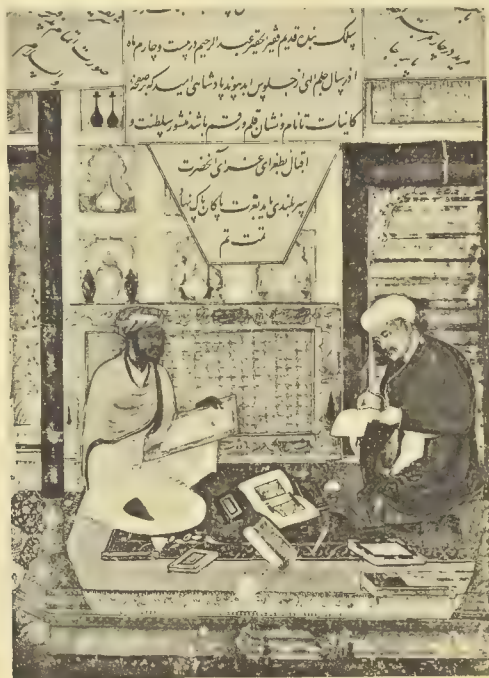 بنده قدیم فقیر الحقیر عبد الرحیم در بیست و چارم ماه
اذر سال الهی از جلوس ابد پیوند پادشاهی امید که بر صفحهٔ
کاینات تا نام و نشان قلم و رقم باشد منشور سلطنت و
اقبال بطغرای غرای آنحضرت
بلندی باد بعزت پاکان پاک
تمت تم
صورت اتمام